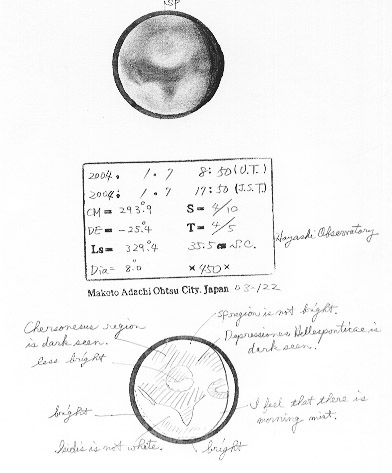 SP
2004. 1. 7 8:50 (U.T.)
2004. 1. 7 17:50 (J.S.T.)
CM = 293.°9 S = 4/10
DE = -25.4 T = 4/5
Ls = 329.°4 35.5 cm S.C.
Dia = 8.″0 × 450 ×
Hayashi Observatory
Makoto Adachi Ohtsu City. Japan 03-122
SP region is not bright.
Chersonesus region
is dark seen.
Depressiones Hellesponticae is
dark seen.
less bright
I feel that there is
morning mist.
bright
is not white.
bright